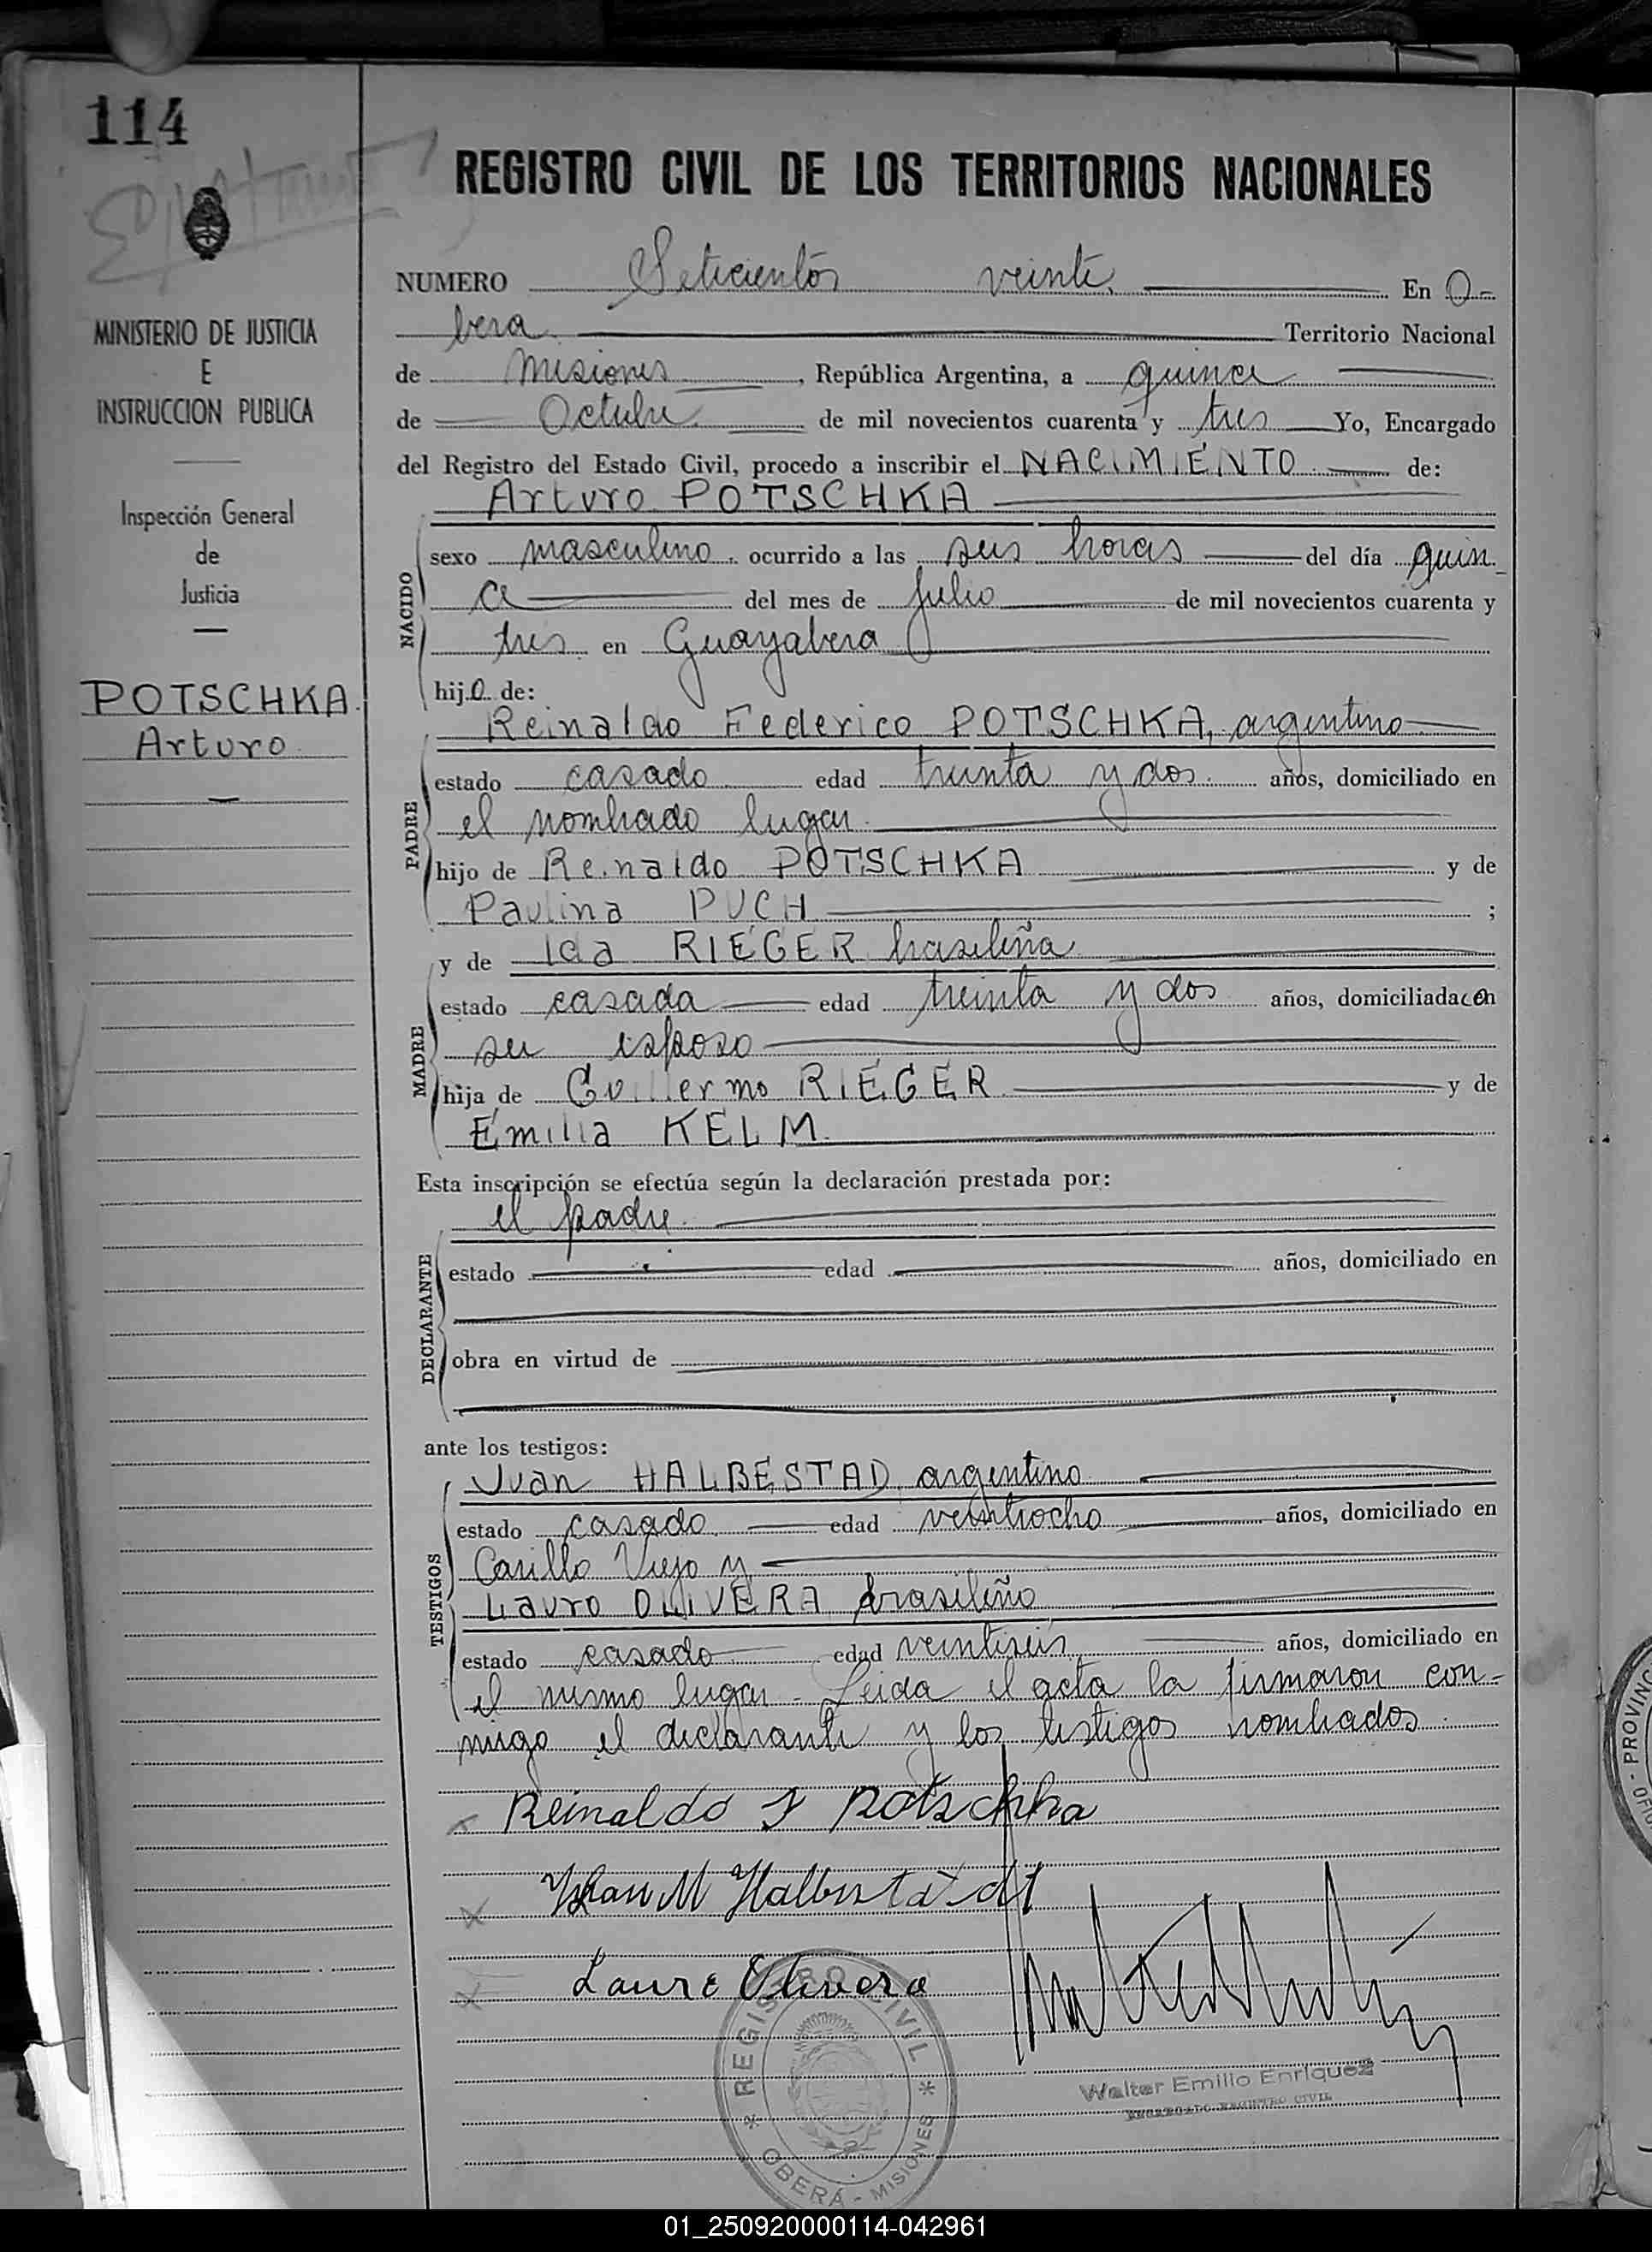 114
REGISTRO CIVIL DE LOS TERRITORIOS NACIONALES
NUMERO Seticientos veinte. En O-
bera Territorio Nacional
de Misiones, República Argentina, a quince
de Octubre de mil novecientos cuarenta y tres Yo, Encargado
del Registro del Estado Civil, procedo a inscribir el NACIMIENTO de:
Arturo POTSCHKA
MINISTERIO DE JUSTICIA
E
INSTRUCCION PUBLICA
Inspección General
de
Justicia
POTSCHKA
Arturo
NACIDO
sexo masculino. ocurrido a las seis horas del día quin-
ce del mes de julio de mil novecientos cuarenta y
tres en Guayabera
hijo de:
PADRE
Reinaldo Federico POTSCHKA, argentino
estado casado edad treinta y dos. años, domiciliado en
el nombrado lugar
hijo de Reinaldo POTSCHKA y de
Paulina PUCH ;
MADRE
y de Ida RIEGER brasileña
estado casada edad treinta y dos años, domiciliada con
su esposo
hija de Guillermo RIEGER y de
Emilia KELM.
Esta inscripción se efectúa según la declaración prestada por:
el padre.
DECLARANTE
estado edad años, domiciliado en
obra en virtud de
ante los testigos:
TESTIGOS
Juan HALBESTAD, argentino
estado casado. edad veintiocho años, domiciliado en
Carillo Viejo y
Lauro OLIVERA brasileño
estado casado edad veintiseis años, domiciliado en
el mismo lugar - Leida el acta la firmaron con-
migo el declarante y los testigos nombrados.
Reinaldo F Potschka
Juan M Halbustadt
Lauro Olivera
REGISTRO CIVIL
OBERÁ - MISIONES
Walter Emilio Enriquez
ENCARGADO REGISTRO CIVIL
PROVINC
01_250920000114-042961